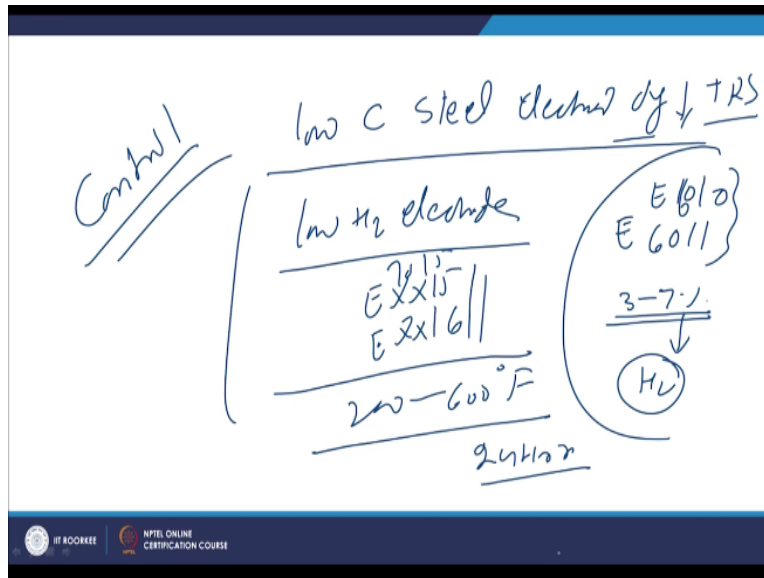 Control
low C steel electrod dy ↓ TRS
low H2 electrode
70 15
EXX15
EXX16
200-600°F
24Hor
E6010
E 6011
3-7%
H2
IIT ROORKEE
NPTEL ONLINE
CERTIFICATION COURSE